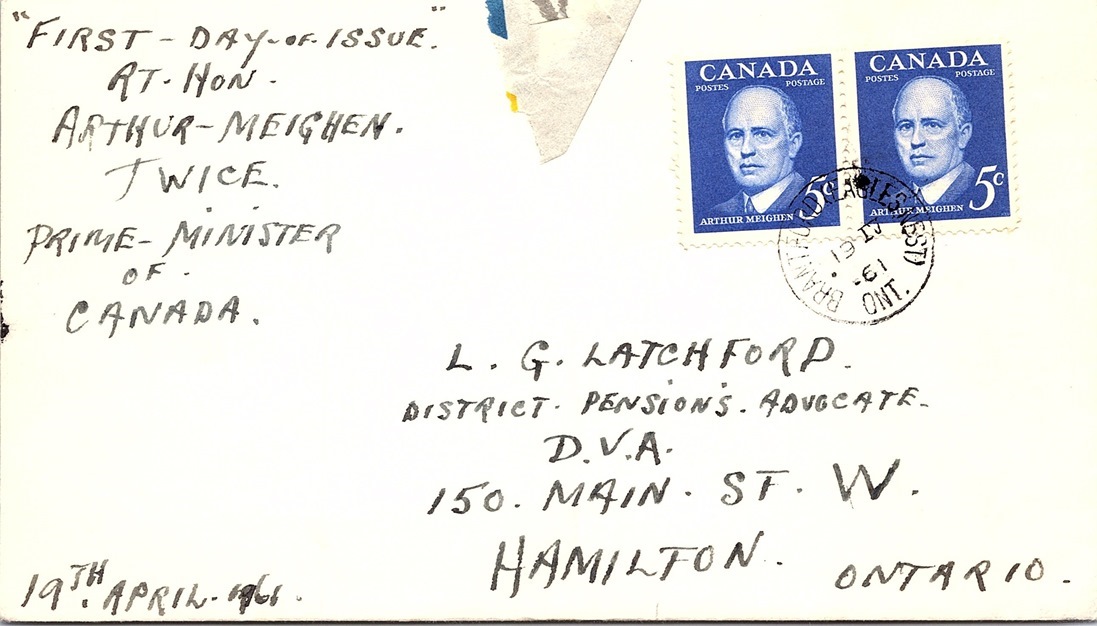 "FIRST-DAY-OF-ISSUE."
RT. HON.
ARTHUR-MEIGHEN.
TWICE.
PRIME-MINISTER
OF.
CANADA.
CANADA
POSTES POSTAGE
5c
ARTHUR MEIGHEN
CANADA
POSTES POSTAGE
5c
ARTHUR MEIGHEN
BRANTFORD (EAGLES NEST)
19 IV
-61
ONT.
L. G. LATCHFORD.
DISTRICT. PENSION'S. ADVOCATE.
D.V.A.
150. MAIN. ST. W.
HAMILTON. ONTARIO.
19TH. APRIL. 1961.